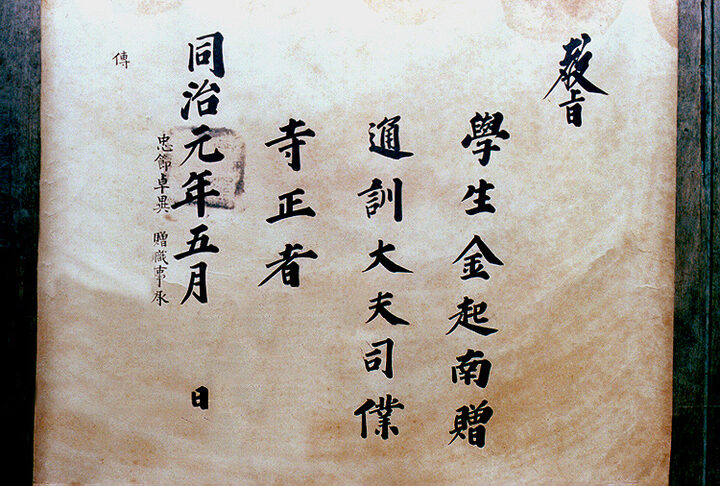 敎旨
學生金起南贈
通訓大夫司僕
寺正者
同治元年五月 日
忠節卓異 贈職事承
傳